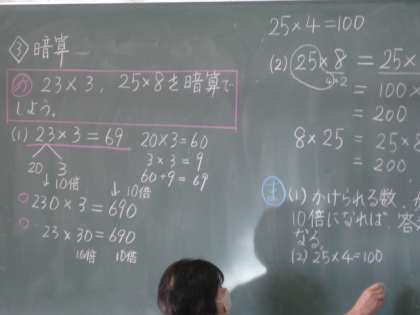 ③暗算
め 23×3、25×8を暗算で
しよう。
(1) 23×3=69
20 3
↓10倍 ↓10倍
230×3=690
23×30=690
10倍 10倍
20×3=60
3×3=9
60+9=69
25×4=100
(2) 25×8=25×
4×2
=100×
=200
8×25=25×8
=200
ま (1) かけられる数、か
10倍になれば、答
なる。
(2) 25×4=100